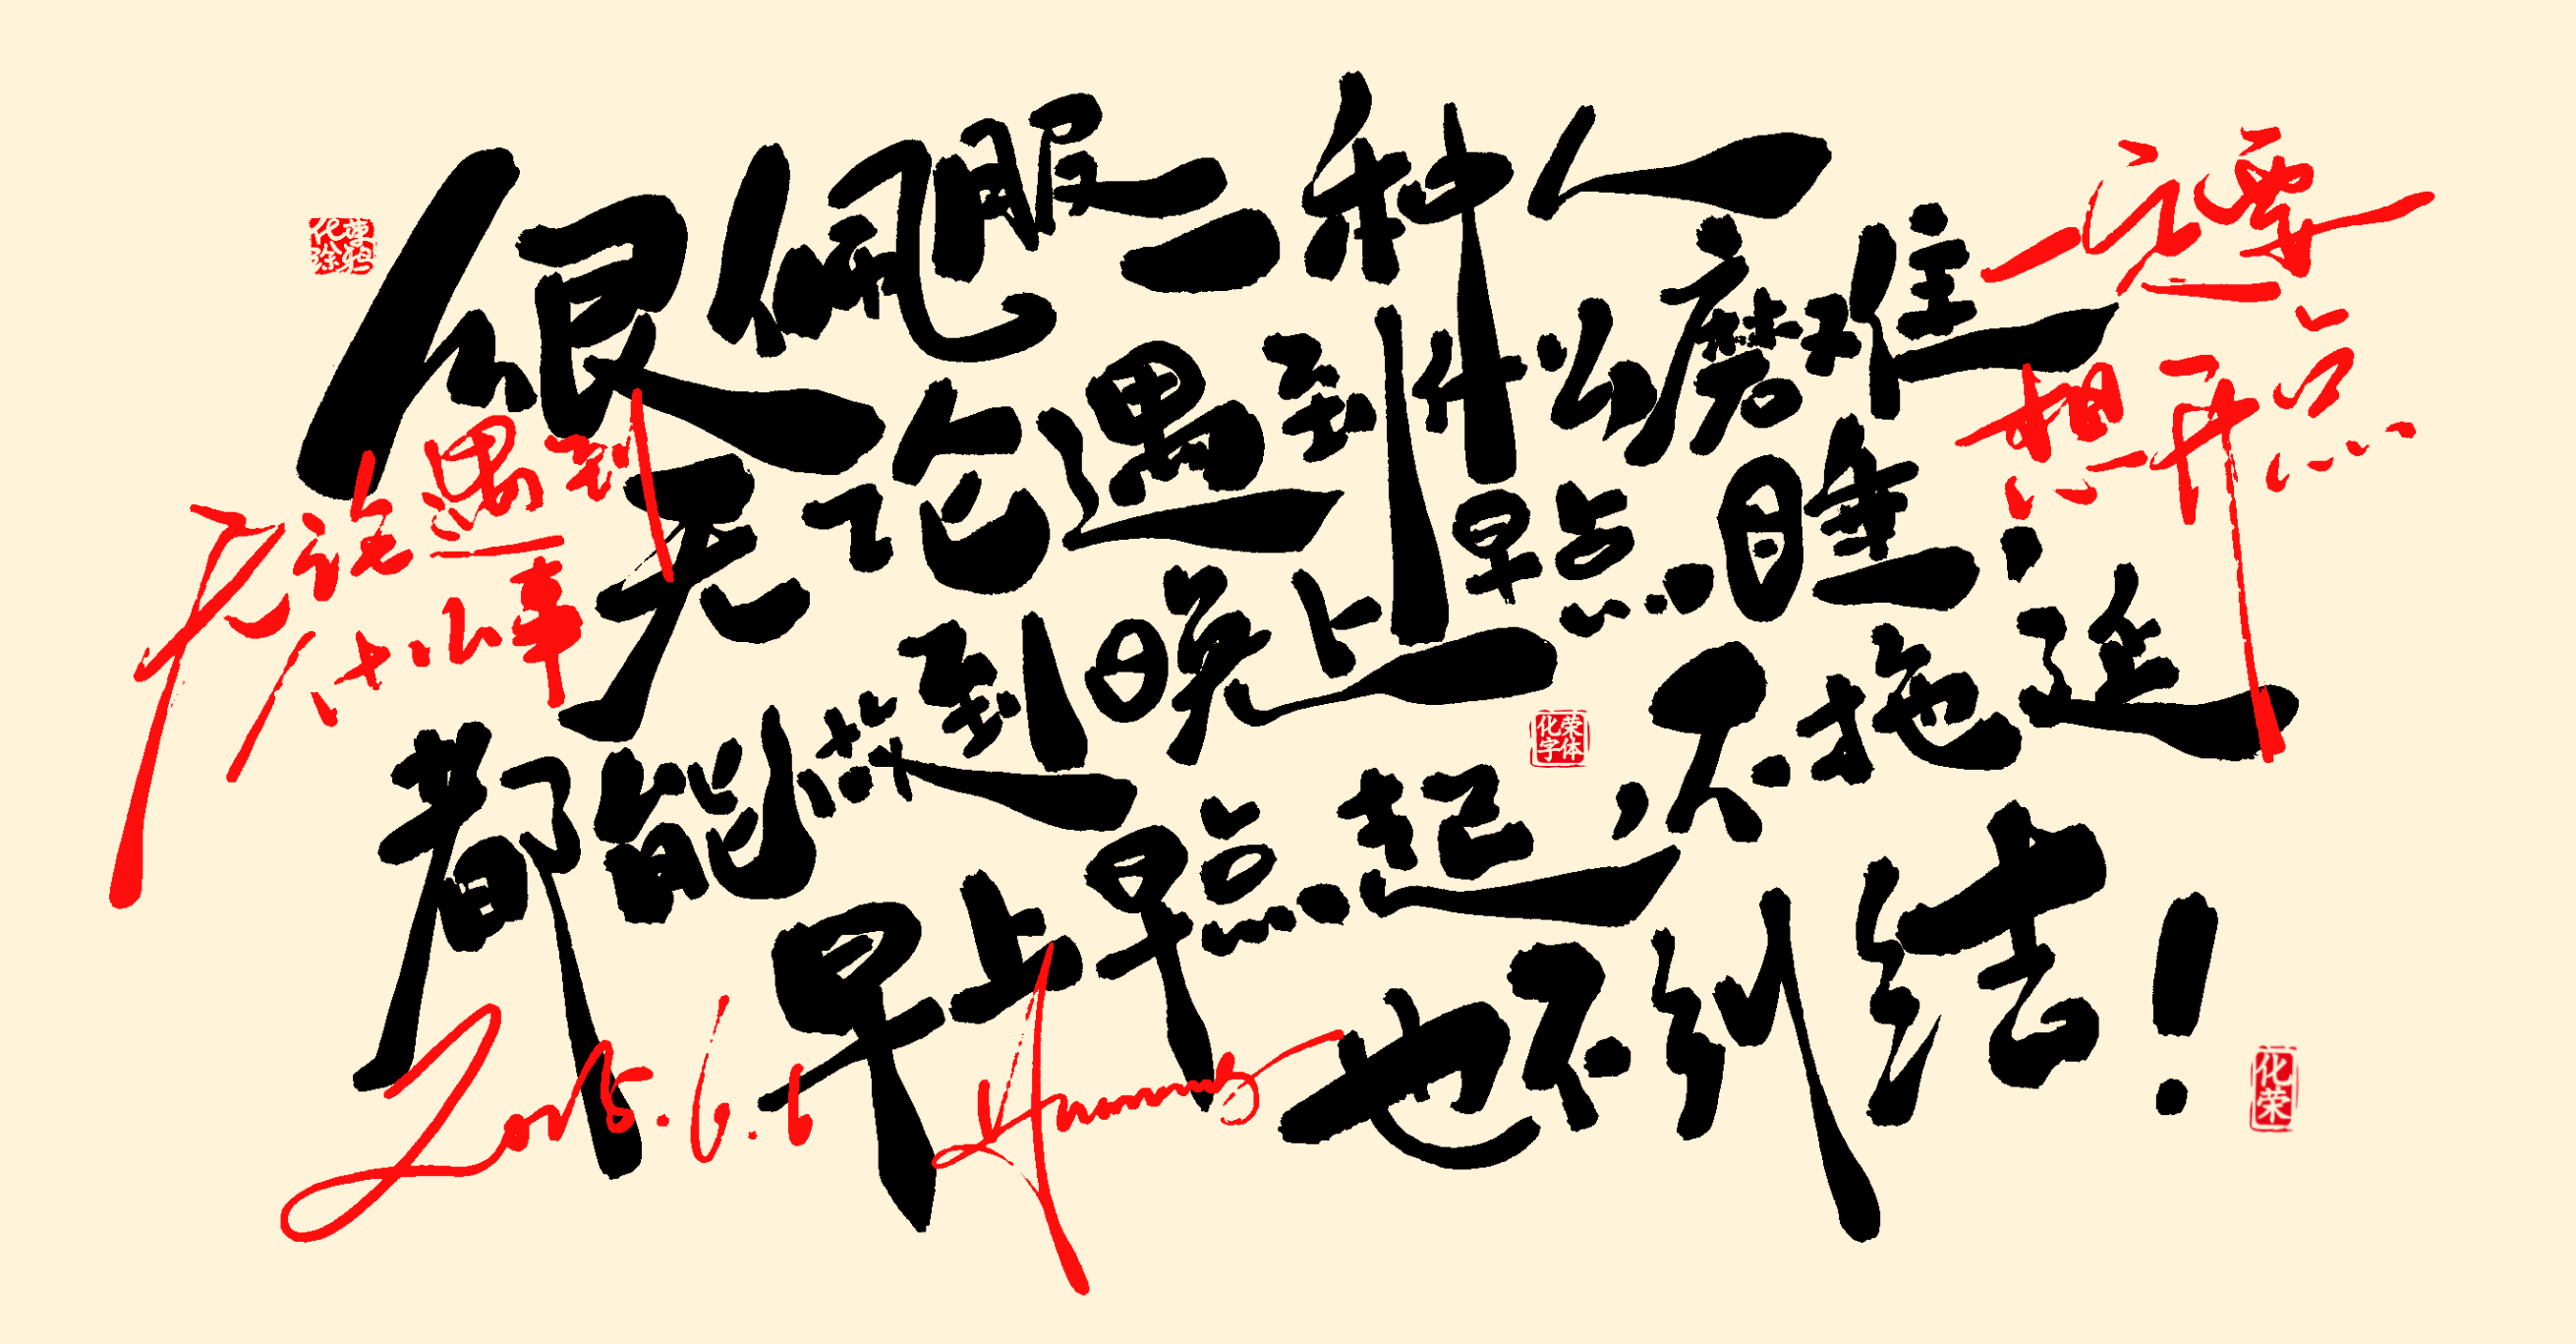 很佩服一种人
无论遇到什么磨难
都能做到晚上早点睡，
早上早点起，不拖延
也不纠结！
无论遇到
什么事
一定要
想开点
2015.6.6
化荣
字体
化荣